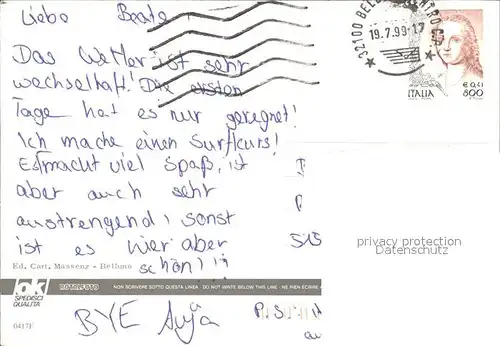 Liebe Beate!
Das Wetter ist sehr
wechselhaft! Die ersten
Tage hat es nur geregnet!
Ich mache einen Surfkurs!
Es macht viel Spaß, ist
aber auch sehr
anstrengend, sonst
ist es hier aber
schön!!!
BYE Anja
P.S.
32100 BELLUNO CENTRO
19.7.99-17
ITALIA
€ 0,41
800
privacy protection
Datenschutz
Ed. Cart. Massenz - Belluno
iok
SPEDISCI
QUALITÀ
ROTALFOTO
NON SCRIVERE SOTTO QUESTA LINEA - DO NOT WRITE BELOW THIS LINE - NE RIEN ECRIRE
0417F